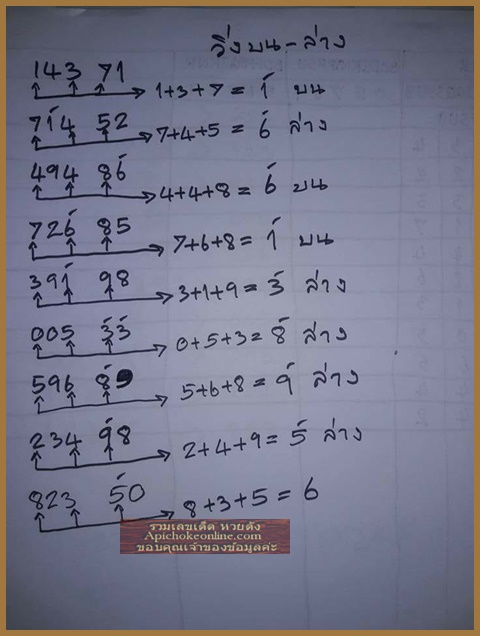 วิ่งบน-ล่าง
143 71 1+3+7= 1 บน
714 52 7+4+5 = 6 ล่าง
494 86 4+4+8 = 6 บน
726 85 7+6+8 = 1 บน
391 98 3+1+9= 3 ล่าง
005 33 0+5+3= 8 ล่าง
596 89 5+6+8 = 9 ล่าง
234 98 2+4+9= 5 ล่าง
823 50 8+3+5 = 6
รวมเลขเด็ด หวยดัง
Apichokeonline.com
ขอบคุณเจ้าของข้อมูลค่ะ